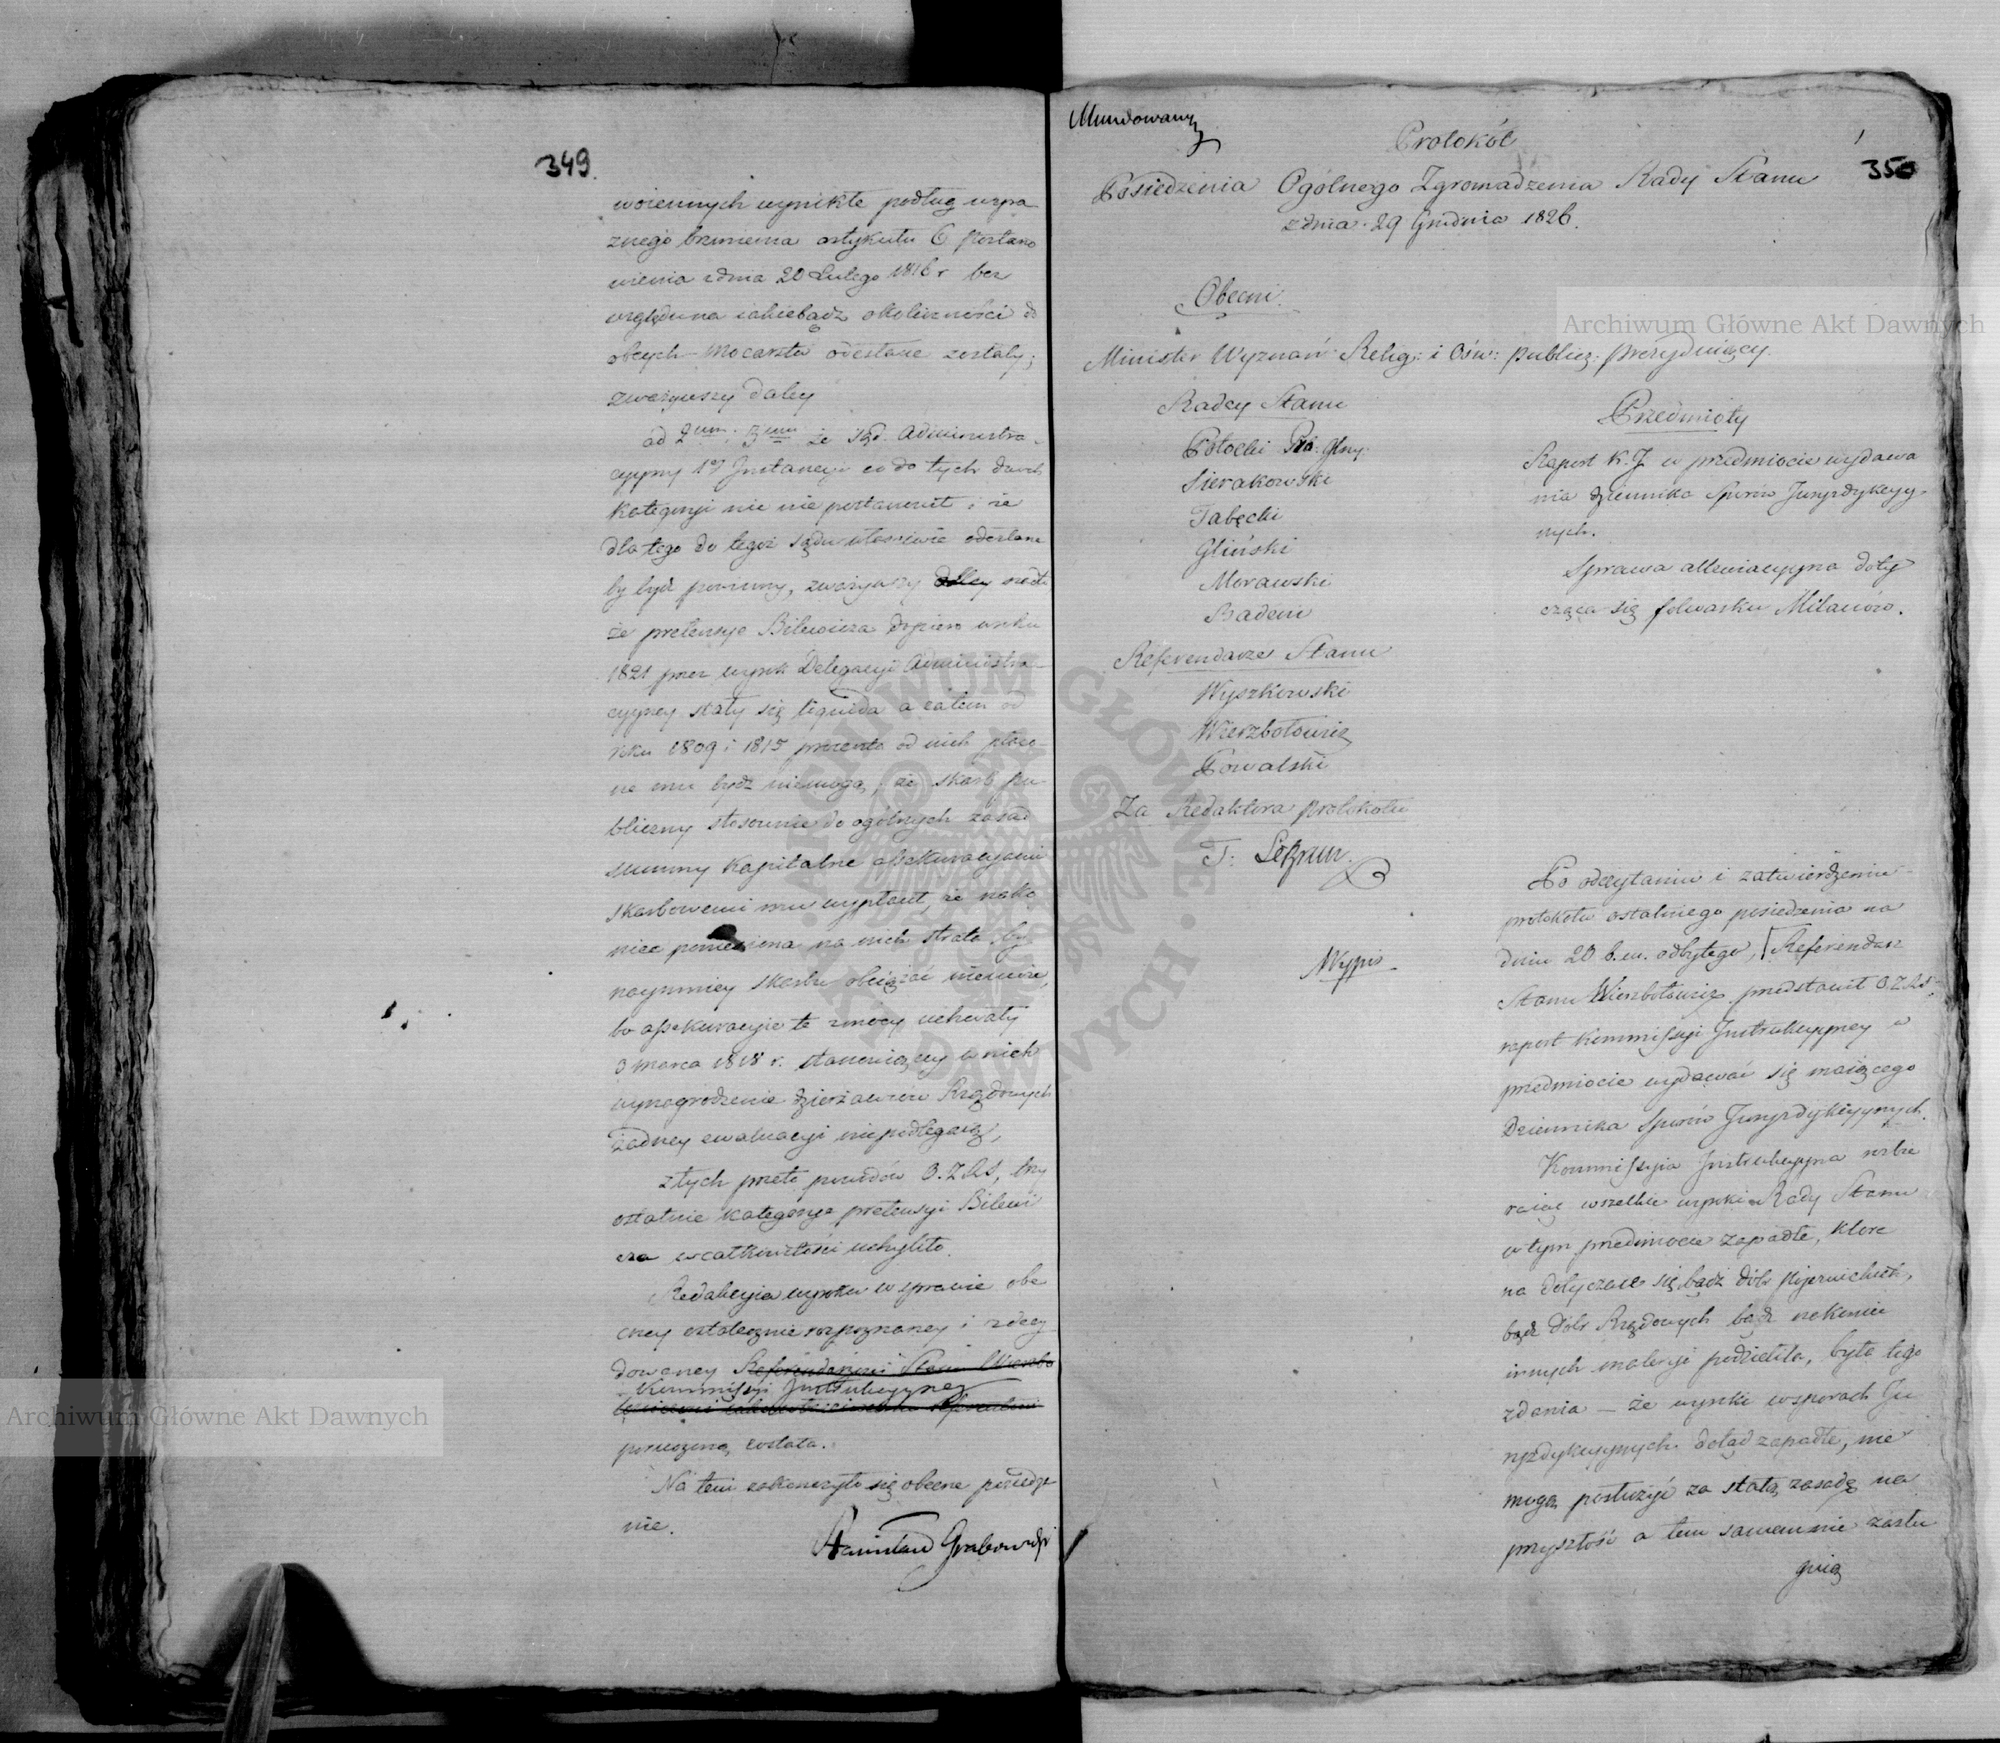 349.
woiennych wynikłe podług wyra
znego brzmienia artykułu 6 postano
wienia zdnia 20 Lutego 1816 r bez
względu na iakiebądź okoliczności do
obcych Mocarstw odesłane zostały;
zważywszy daley
ad 2um i 3um że Sąd Administra
cyyny 1ey Instancyi co do tych dwóch
kategoryi nic nie postanowił i że
dla tego do tegoż Sądu właściwie odesłane
by być powinny, zważywszy nadto
że pretensye Bilewicza dopiero wroku
1821 przez wyrok Delegacyi Administra
cyyney stały się liquida a zatem od
roku 1809 i 1815 procenta od nich płaco
ne mu bydź niemogą, że skarb pu
bliczny stosownie do ogólnych zasad
summy kapitalne assekuracyami
skarbowemi mu wypłacił, że nako
niec poniesiona na nich strata by
naymniey skarbu obciążać niemoże,
bo assekuracyie te zmocy uchwały
3 marca 1818 r. stanowiącey o nich
wynagrodzenie dzierżawców Rządowych
żadney ewaluacyi niepodlegaią,
ztych przeto powodów O.Z.R.S, trzy
ostatnie kategorye pretensyi Bilewi
cza wcałkowitości uchyliło.
Redakcyia wyroku w sprawie obe
cney ostatecznie rozpoznaney i zdecy
dowaney Referendarzowi Stanu Wierzbo
Kommissyi Instrukcyyney
poruczoną została.
Na tem zakończyło się obecne posiedze
nie.
Stanisław Grabowski
Mundowany
350
Protokół
Posiedzenia Ogólnego Zgromadzenia Rady Stanu
zdnia 29 Grudnia 1826.
Obecni.
Minister Wyznań Relig: i Ośw: publicz: prezyduiący.
Radcy Stanu
Potocki Pro: Glny.
Sierakowski
Tabęcki
Gliński
Morawski
Badeni
Referendarze Stanu
Wyszkowski
Wierzbołowicz
Kowalski
Za Redaktora protokołu
T: Lebrun.
Przedmioty
Raport K. J. w przedmiocie wydawa
nia dziennika Sporów Juryzdykcyy
nych.
Sprawa attenuacyyna doty
cząca się folwarku Milanów.
Wypis
Po odczytaniu i zatwierdzeniu
protokołu ostatniego posiedzenia na
dniu 20 b.m. odbytego, Referendarz
Stanu Wierzbołowicz przedstawił O.Z.R.S,
raport Kommissyi Instrukcyyney w
przedmiocie wydawać się maiącego
Dziennika Sporów Juryzdykcyynych.
Kommissyia Instrukcyyna rozbie
raiąc wszelkie wyroki Rady Stanu
w tym przedmiocie zapadłe, które
na dotyczące się bądź dóbr supiernickich,
bądź dóbr Rządowych bądź nakoniec
innych materyi podzieliła, była tego
zdania — że wyroki wsporach Ju
ryzdykcyynych dotąd zapadłe, nie
mogą posłużyć za stałą zasadę na
przyszłość a tem samem nie zasłu
guią
Archiwum Główne Akt Dawnych
Archiwum Główne Akt Dawnych
ARCHIWUM GŁÓWNE AKT DAWNYCH